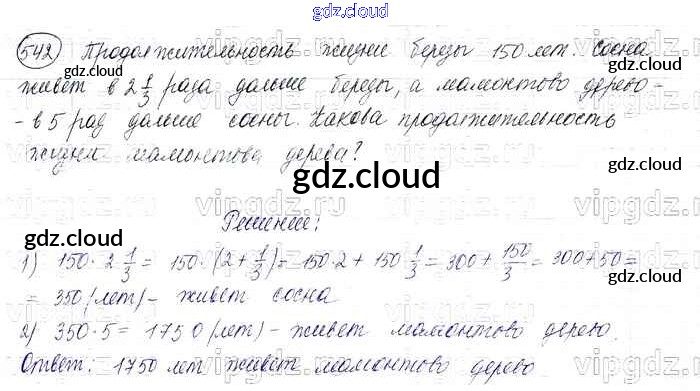 gdz.cloud
542 Продолжительность жизни березы 150 лет. Сосна
gdz.cloud
живет в 2 1/3 раза дальше березы, а мамонтово дерево -
- в 5 раз дальше сосны. Какова продолжительность
жизни мамонтова дерева?
gdz.cloud
gdz.cloud
Решение:
gdz.cloud
1) 150 · 2 1/3 = 150 · (2 + 1/3) = 150 · 2 + 150 1/3 = 300 + 150/3 = 300 + 50 =
= 350 (лет) - живет сосна
2) 350 · 5 = 1750 (лет) - живет мамонтово дерево.
Ответ: 1750 лет живет мамонтово дерево
gdz.cloud